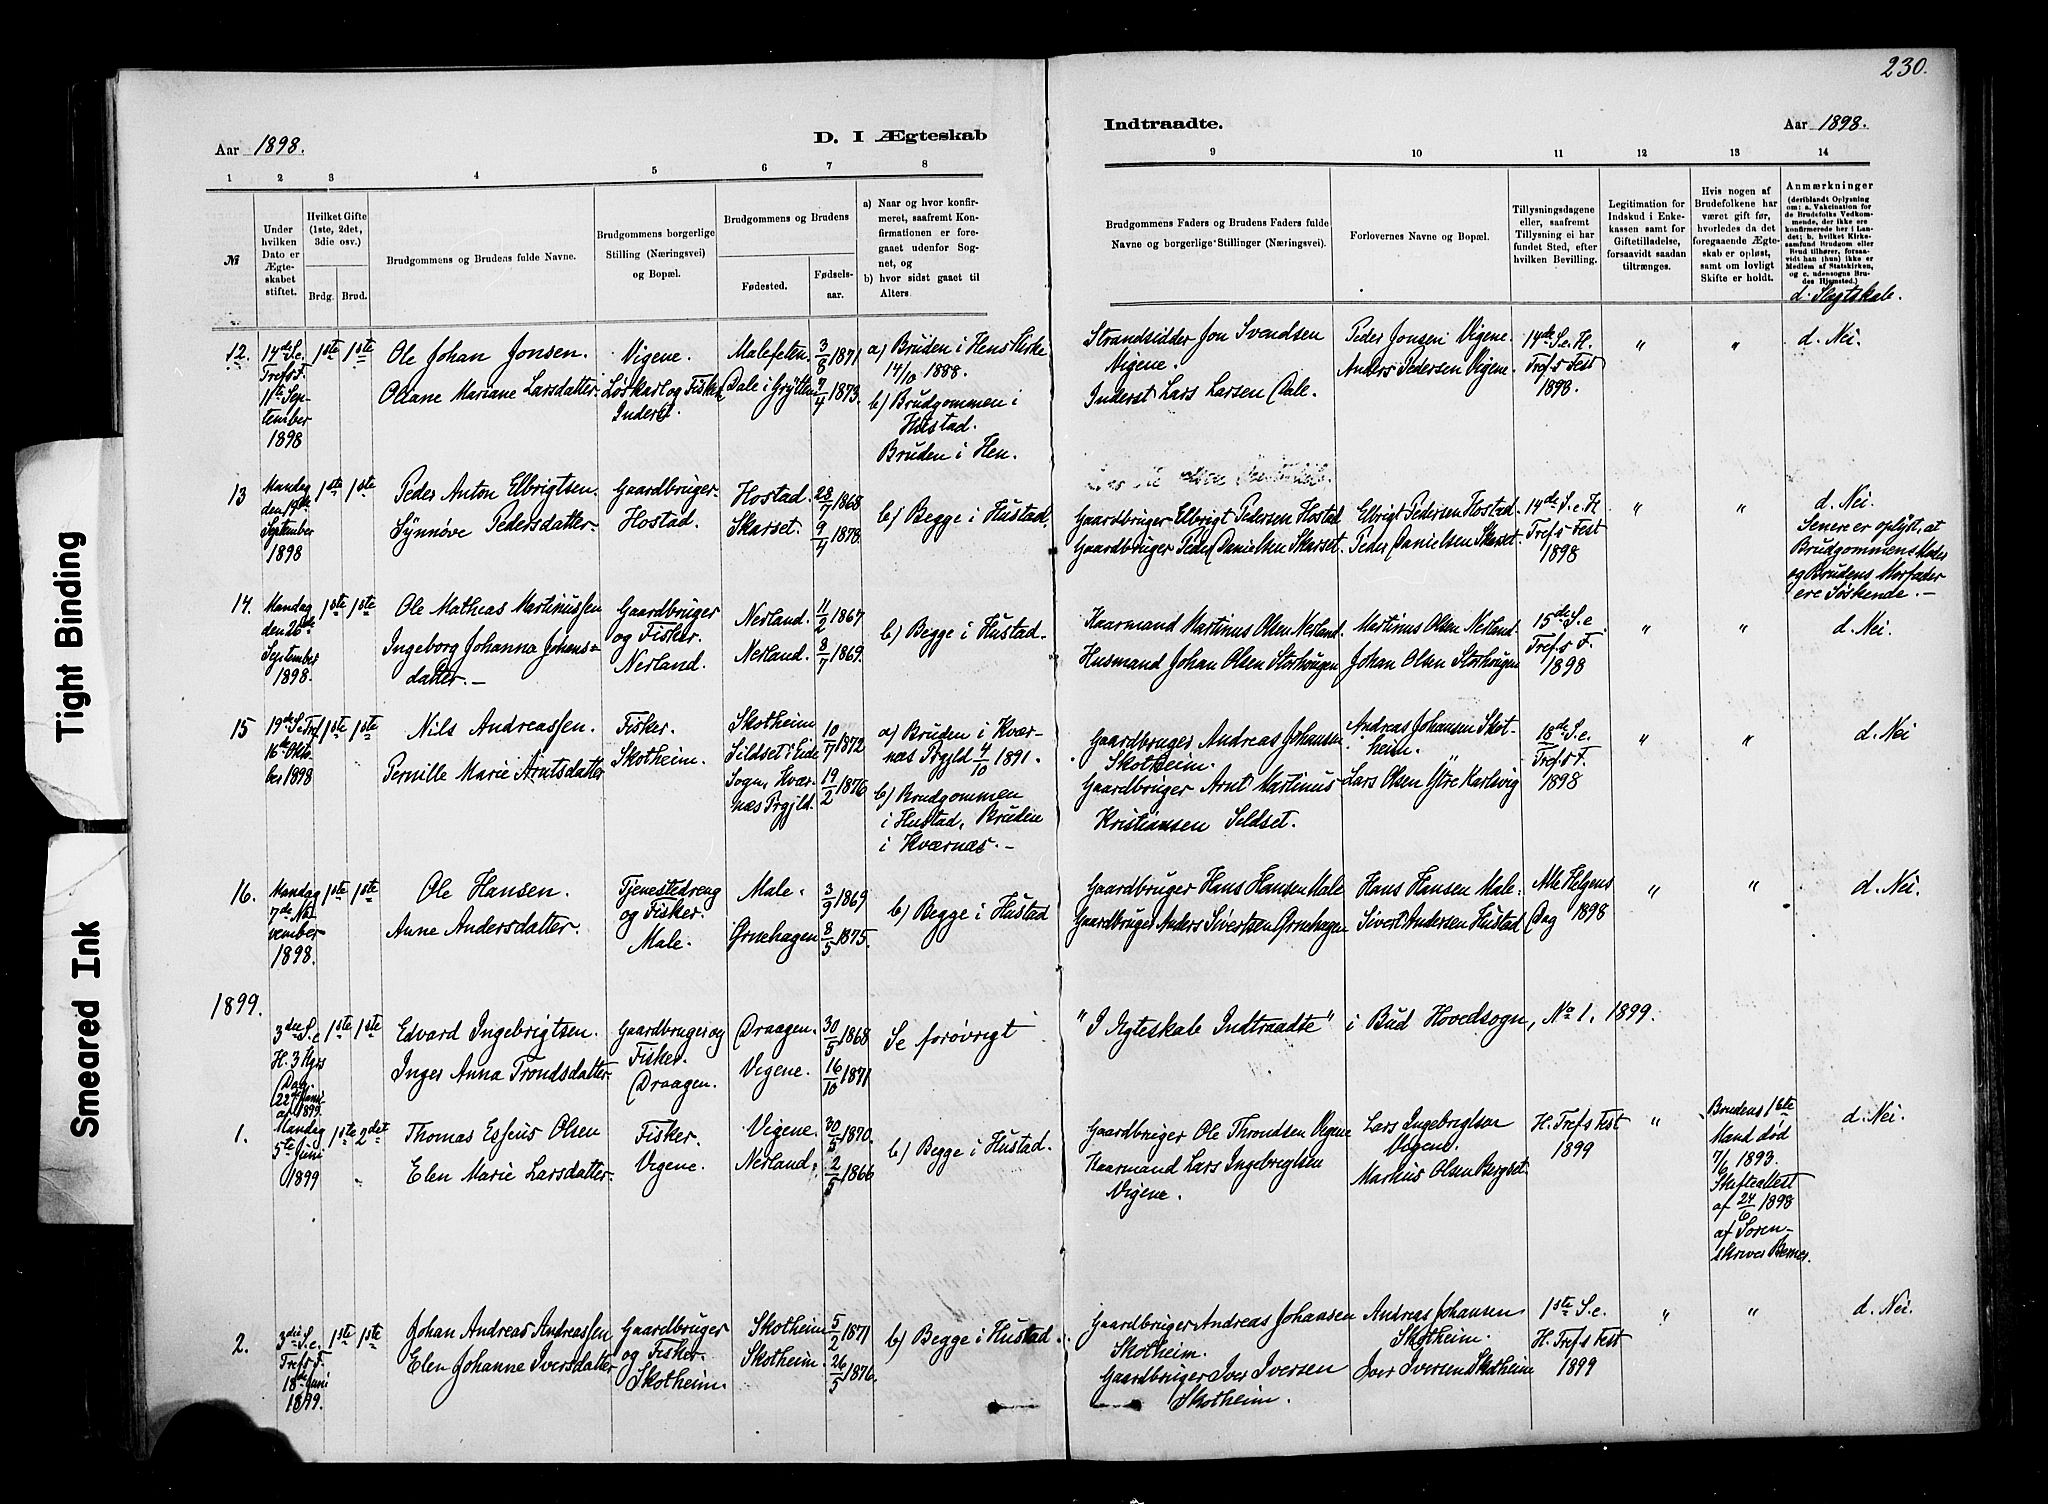 230.
Aar 1898.
D. I Ægteskab
Indtraadte.
Aar 1898.
1 2 3 4 5 6 7 8
9 10 11 12 13 14
№
Under hvilken Dato er Ægteskabet stiftet.
Hvilket Gifte (1ste, 2det, 3die osv.)
Brdg. Brud.
Brudgommens og Brudens fulde Navne.
Brudgommens borgerlige Stilling (Næringsvei) og Bopæl.
Brudgommens og Brudens
Fødested.
Fødsels-aar.
a) Naar og hvor konfirmeret, saafremt Konfirmationen er foregaaet udenfor Sognet, og
b) hvor sidst gaaet til Alters.
Brudgommens Faders og Brudens Faders fulde Navne og borgerlige Stillinger (Næringsvei).
Forlovernes Navne og Bopæl.
Tillysningsdagene eller, saafremt Tillysning ei har fundet Sted, efter hvilken Bevilling.
Legitimation for Indskud i Enkekassen samt for Giftetilladelse, forsaavidt saadan tiltrænges.
Hvis nogen af Brudefolkene har været gift før, hvorledes da det foregaaende Ægteskab er opløst, samt om lovligt Skifte er holdt.
Anmærkninger (deriblandt Oplysning om: a. Vakcination for de Brudefolks Vedkommende, der ikke ere konfirmerede her i Landet; b. hvilket Kirkesamfund Brudgom eller Brud tilhører, forsaavidt han (hun) ikke er Medlem af Statskirken, og c. udensogns Brudes Hjemsted.)
d. Slægtskab.
12.
14de S. e. Tref.s F. 11te September 1898
1ste 1ste
Ole Johan Jonsen.
Oliane Mariane Larsdatter.
Vigene.
Løskarl og Fisker, Inderst.
Malefeten. 3/8 1871
Dale i Grytten 4/4 1873.
a) Bruden i Hens Kirke 14/10 1888.
b) Brudgommen i Hustad.
Bruden i Hen.
Strandsidder Jon Svendsen Vigene.
Inderst Lars Larsen Dale.
Peder Jonsen Vigene
Anders Pedersen Vigene.
14de S. e. H. Tref.s Fest 1898.
" "
d. Nei.
13
Mandag den 19de September 1898
1ste 1ste
Peder Anton Elbrigtsen.
Synnøve Pedersdatter.
Gaardbruger.
Hostad.
Hostad. 28/7 1868
Skarset. 9/4 1878.
b) Begge i Hustad.
Gaardbruger Elbrigt Pedersen Hostad
Gaardbruger Peder Danielsen Skarset.
Elbrigt Pedersen Hostad.
Peder Danielsen Skarset.
14de S. e. H. Tref.s Fest 1898
" "
d. Nei.
Senere er oplyst, at Brudgommens Moder og Brudens Morfader ere Søskende. —
14.
Mandag den 26de September 1898.
1ste 1ste
Ole Mathias Martinussen
Ingeborg Johanna Johansdatter. —
Gaardbruger og Fisker.
Nerland.
Nerland. 11/2 1867
Nerland. 8/7 1869.
b) Begge i Hustad.
Kaarmand Martinus Olsen Nerland.
Husmand Johan Olsen Storhougen
Martinus Olsen Nerland.
Johan Olsen Storhougen
15de S. e. Tref.s F. 1898
" "
d. Nei.
15
19de S. e. Tref. 16de Oktober 1898
1ste 1ste
Nils Andreassen.
Pernille Marie Arntsdatter
Fisker.
Skotheim.
Skotheim 10/7 1872
Sildset i Eide Sogn, Kværnæs Prgjld. 19/2 1876
a) Bruden i Kværnæs Prgjld 4/10 1891.
b) Brudgommen i Hustad, Bruden i Kværnæs. —
Gaardbruger Andreas Johansen Skotheim.
Gaardbruger Arnt Martinus Kristiansen Sildset.
Andreas Johansen Skotheim.
Lars Olsen Ytre Karlsvig
18de S. e. Tref.s F. 1898
" "
d. Nei
16.
Mandag 7de November 1898.
1ste 1ste
Ole Hansen.
Anne Andersdatter.
Tjenestedreng og Fisker.
Male.
Male. 3/9 1869
Ørnehagen 8/5 1875.
b) Begge i Hustad
Gaardbruger Hans Hansen Male
Gaardbruger Anders Sivertsen Ørnehagen
Hans Hansen Male.
Sivert Andersen Hustad
Alle Helgens Dag 1898
" "
d. Nei.
1899.
3die S. e. H. 3 Kgrs Dag. 22de Januar 1899.
1ste 1ste
Edvard Ingebrigtsen.
Inger Anna Trondsdatter.
Gaardbruger og Fisker.
Draagen.
Draagen. 30/5 1868
Vigene. 16/10 1871
Se forøvrigt "I Ægteskab Indtraadte" i Bud Hovedsogn, No 1. 1899.
1.
Mandag 5te Juni 1899
1ste 2det
Thomas Esseus Olsen
Elen Marie Larsdatter.
Fisker.
Vigene.
Vigene. 30/5 1870.
Nerland. 2/5 1866
b) Begge i Hustad.
Gaardbruger Ole Throndsen Vigene
Kaarmand Lars Ingebrigtsen Vigene.
Lars Ingebrigtsen Vigene.
Markus Olsen Bergset.
H. Tref.s Fest 1899
"
Brudens 1ste Mand død 7/6 1893.
Skifteattest af 24/6 1898 af Sorenskriver Berner.
d. Nei.
2.
3die S. e. Tref.s F. 18de Juni 1899.
1ste 1ste
Johan Andreas Andreassen
Elen Johanne Iversdatter
Gaardbruger og Fisker.
Skotheim.
Skotheim 5/2 1871
Skotheim. 26/5 1876.
b) Begge i Hustad.
Gaardbruger Andreas Johansen Skotheim.
Gaardbruger Iver Iversen Skotheim.
Andreas Johansen Skotheim.
Iver Iversen Skotheim
1ste S. e. H. Tref.s Fest 1899
" "
d. Nei.
Tight Binding
Smeared Ink